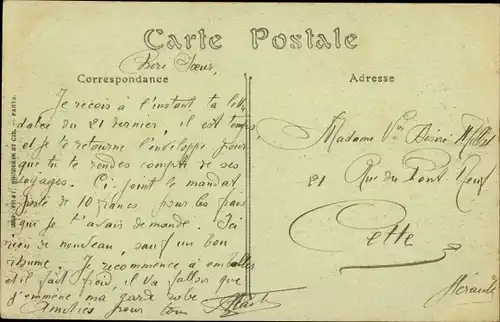 Carte Postale
Correspondance
Adresse
Chère Sœur,
Je reçois à l'instant ta lettre
datée du 21 dernier, il est temps,
et je te retourne l'enveloppe pour
que tu te rendes compte de ses
voyages. Ci joint le mandat
carte de 10 francs pour les frais
que je t'avais demandé. Ici
rien de nouveau, sauf un bon
rhume. Je recommence à emballer
et il fait froid, il va falloir que
j'emmène ma garde robe
Amitiés pour tous
Madame Vve Désiré
21 Rue du Pont Neuf
Cette
Hérault